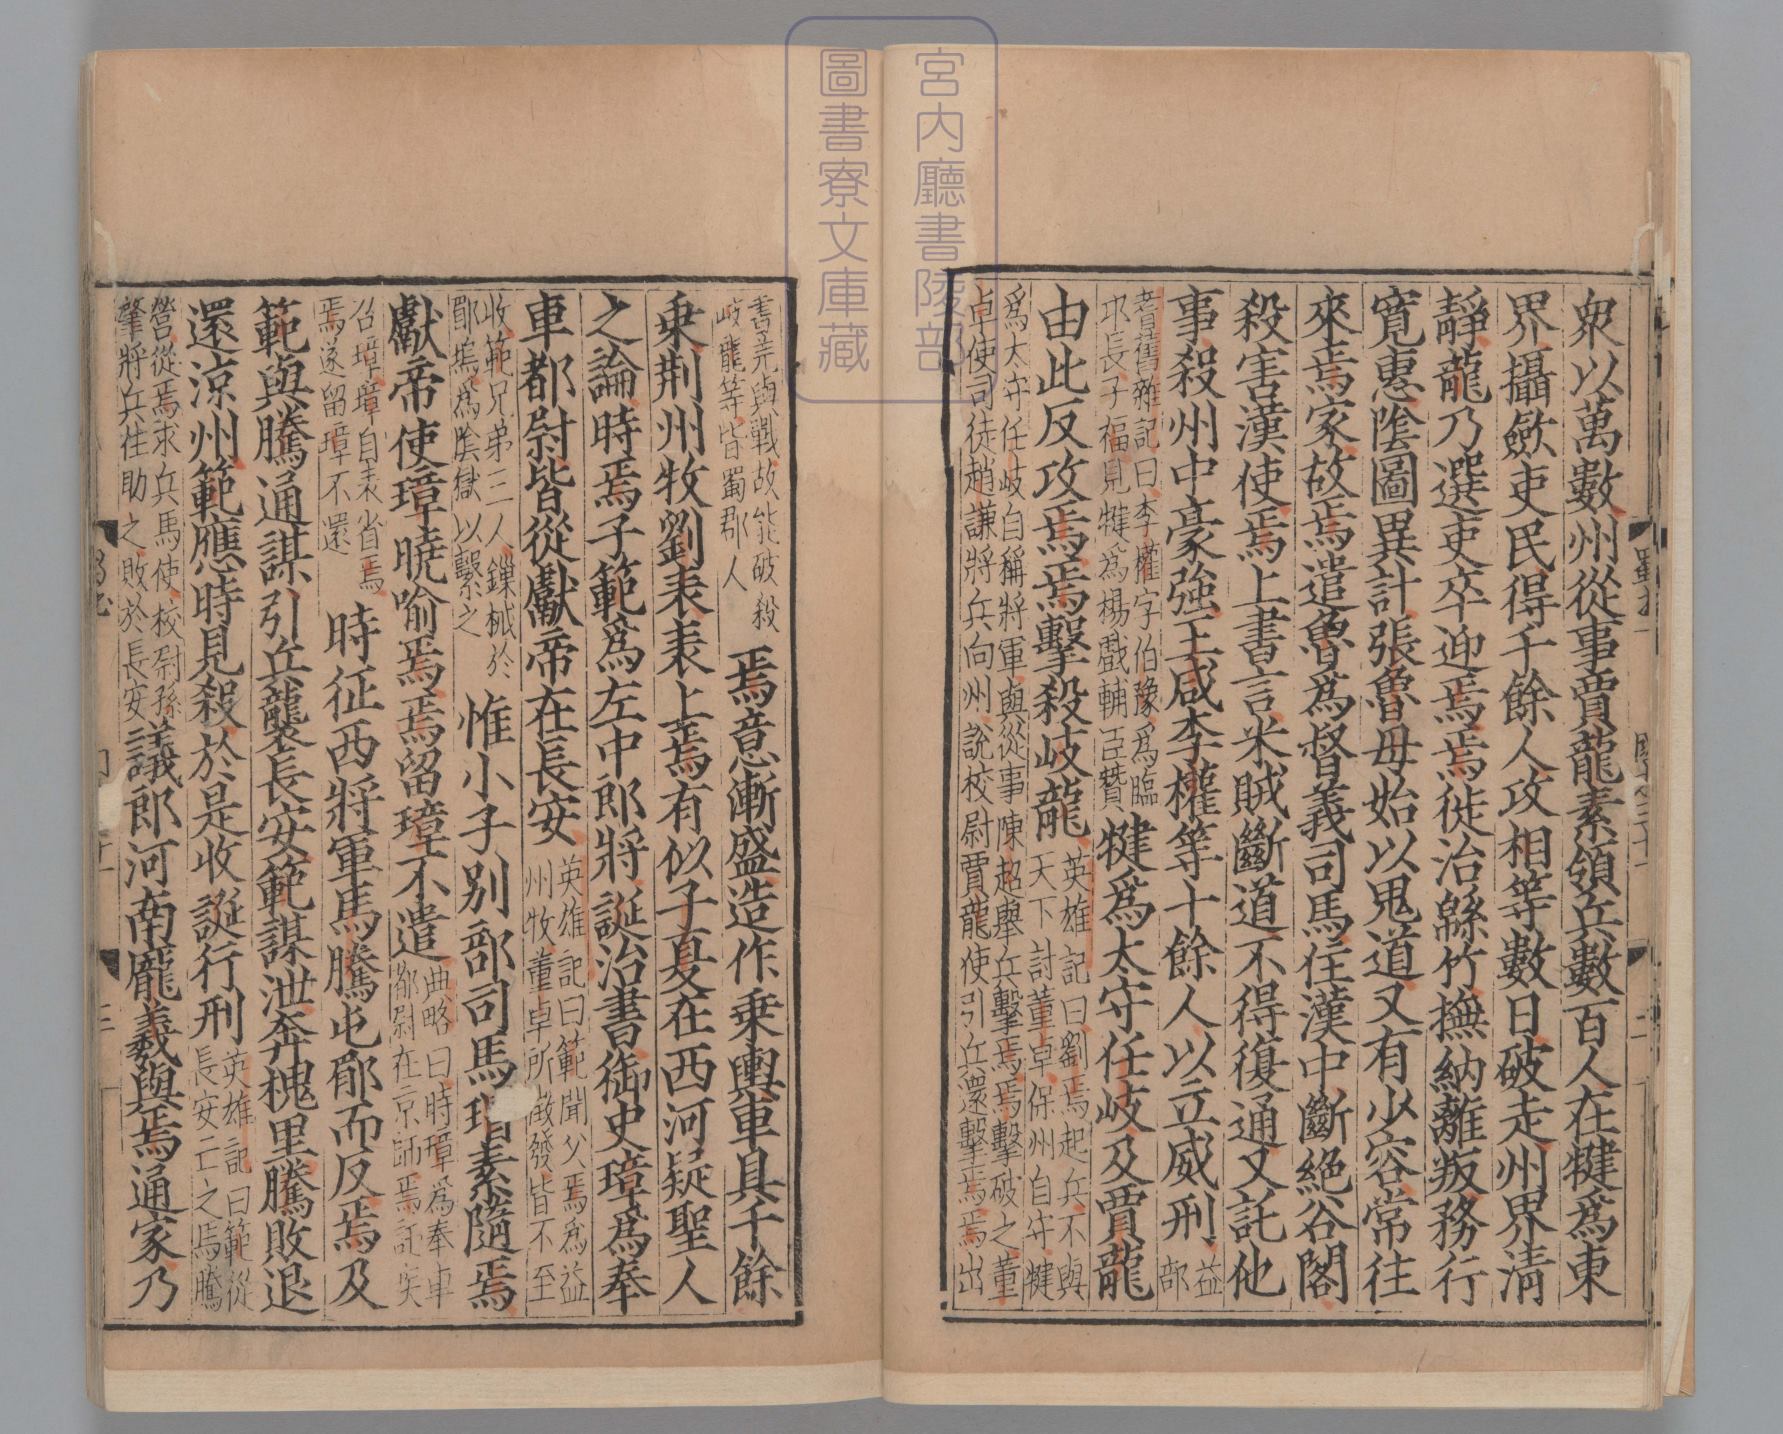 宮內廳書陵部
圖書寮文庫藏
衆以萬數州從事賈龍素領兵數百人在犍爲東
界攝斂吏民得千餘人攻相等數日破走州界淸
靜龍乃選吏卒迎焉焉徙治緜竹撫納離叛務行
寬惠陰圖異計張魯母始以鬼道又有少容常往
來焉家故焉遣魯爲督義司馬住漢中斷絕谷閣
殺害漢使焉上書言米賊斷道不得復通又託他
事殺州中豪強王咸李權等十餘人以立威刑
益
部
耆舊雜記曰李權字伯豫爲臨
邛長子福見犍爲楊戲輔臣贊
犍爲太守任岐及賈龍
由此反攻焉焉擊殺岐龍
英雄記曰劉焉起兵不與
天下討董卓保州自守犍
爲太守任岐自稱將軍與從事陳超舉兵擊焉焉擊破之董
卓使司徒趙謙將兵向州說校尉賈龍使引兵還擊焉焉出
靑羌與戰故能破殺
岐龍等皆蜀郡人
焉意漸盛造作乗輿車具千餘
乗荆州牧劉表表上焉有似子夏在西河疑聖人
之論時焉子範爲左中郎將誕治書御史璋爲奉
車都尉皆從獻帝在長安
英雄記曰範聞父焉爲益
州牧董卓所徵發皆不至
收範兄弟三人鏁械於
郿塢爲陰獄以繫之
惟小子別部司馬瑁素隨焉
獻帝使璋曉喻焉焉留璋不遣
典略曰時璋爲奉車
都尉在京師焉託疾
召璋璋自表省焉
焉遂留璋不還
時征西將軍馬騰屯郿而反焉及
範與騰通謀引兵襲長安範謀泄奔槐里騰敗退
還涼州範應時見殺於是收誕行刑
英雄記曰範從
長安亡之馬騰
營從焉求兵馬使校尉孫
肇將兵往助之敗於長安
議郎河南龐羲與焉通家乃